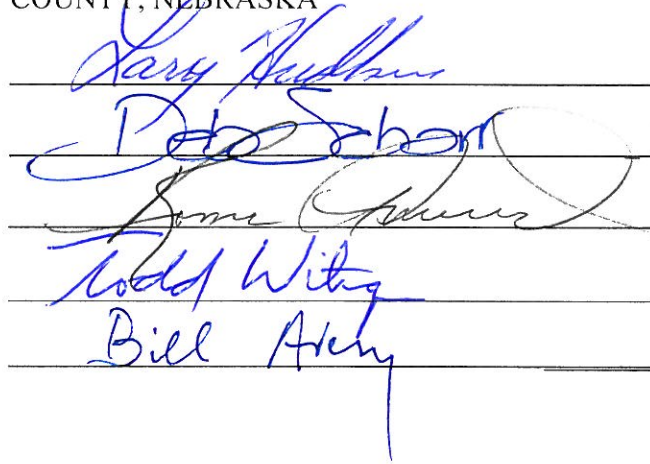 COUNTY, NEBRASKA
Larry Hudkins
Deb Schorr
Roma Amundson
Todd Wiltgen
Bill Avery